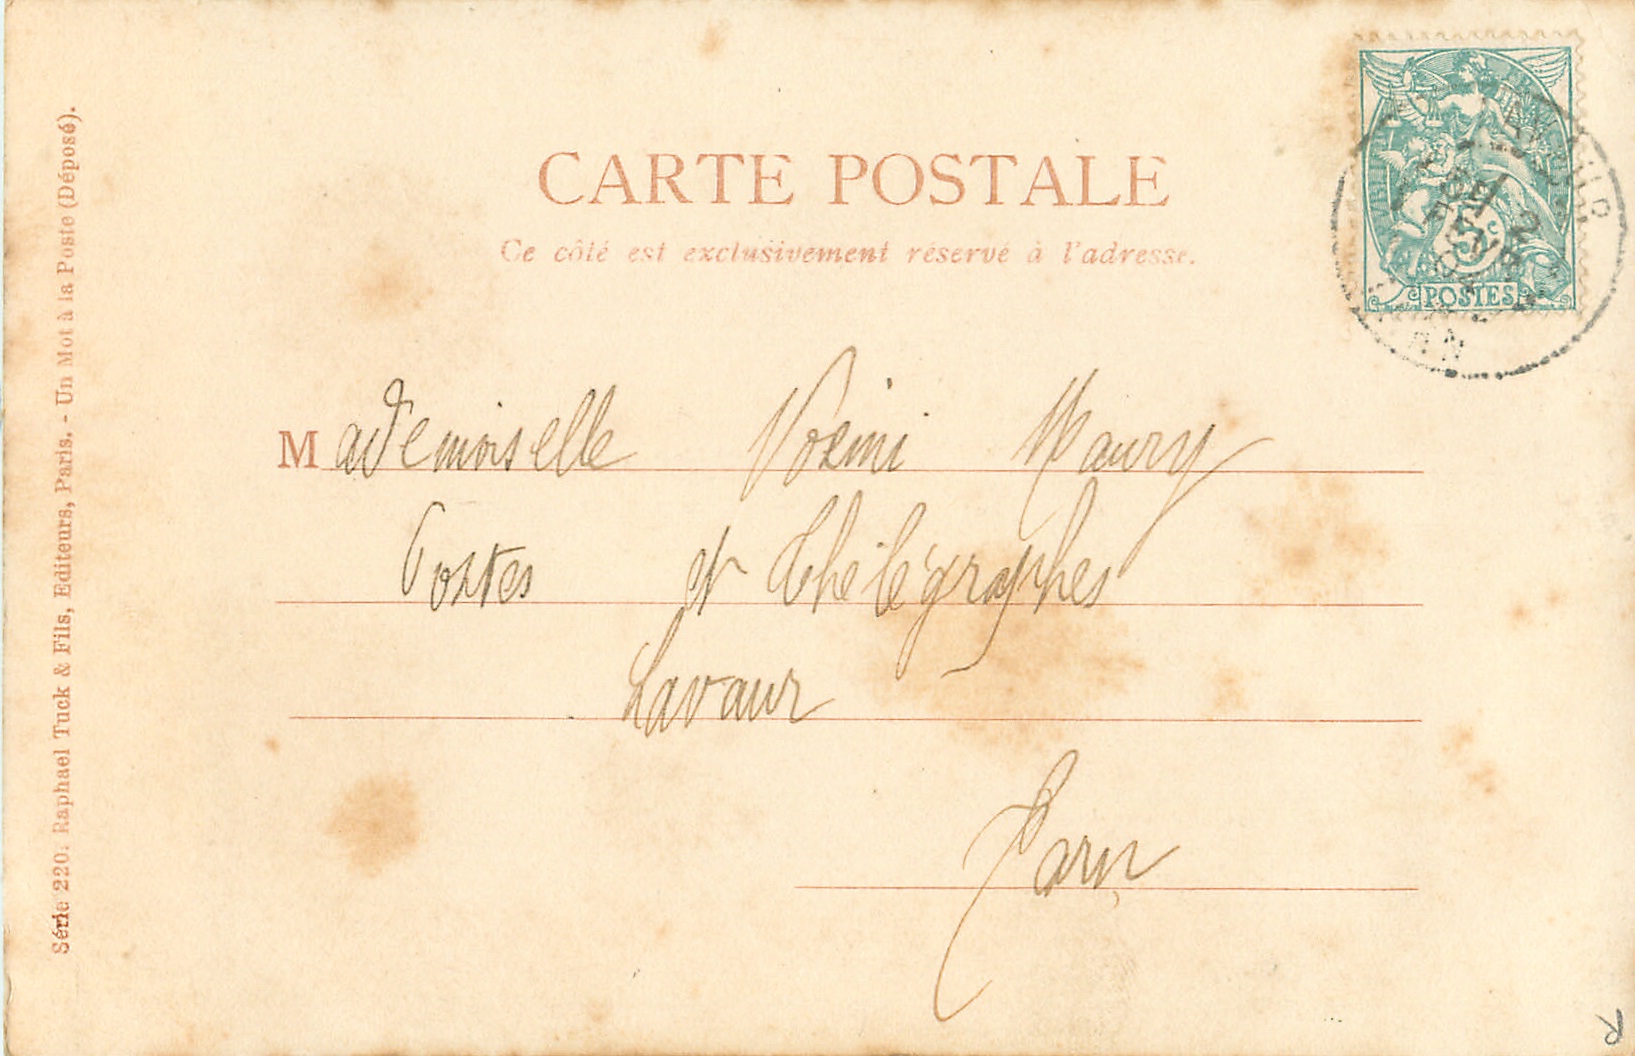 CARTE POSTALE
Ce côté est exclusivement réservé à l'adresse.
Mademoiselle Noémi Maury
Postes et Thélégraphes
Lavaur
Tarn
Série 220. Raphael Tuck & Fils, Editeurs, Paris. - Un Mot à la Poste (Déposé).
5c
POSTES
R